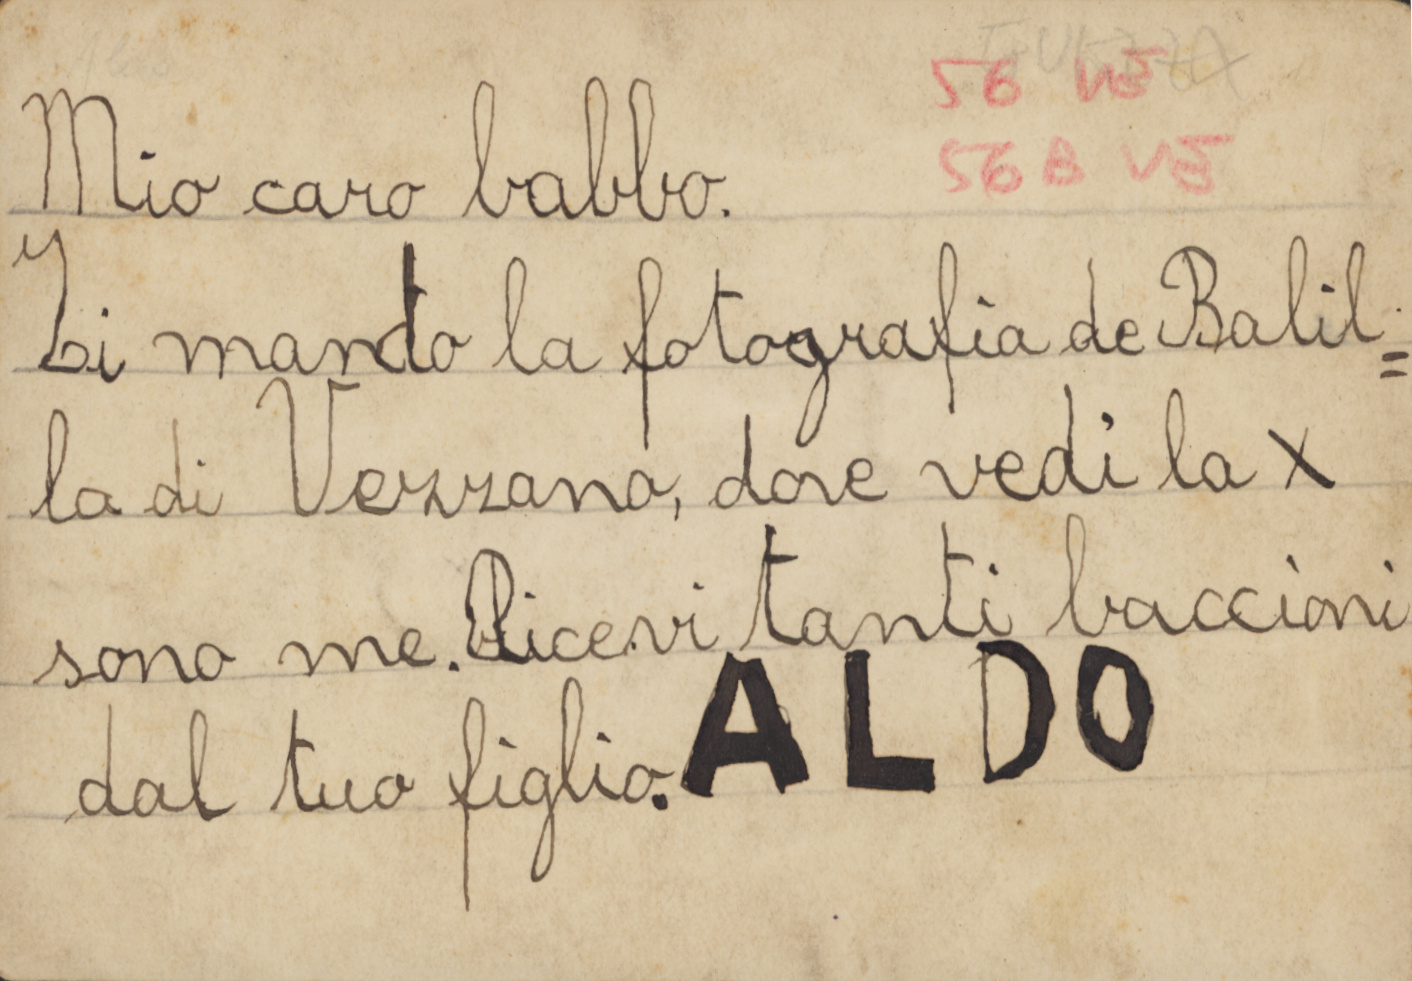 56 VE
56 B VE
Mio caro babbo.
Ti mando la fotografia de Balil=
la di Vezzano, dove vedi la X
sono me. Ricevi tanti baccioni
dal tuo figlio. ALDO